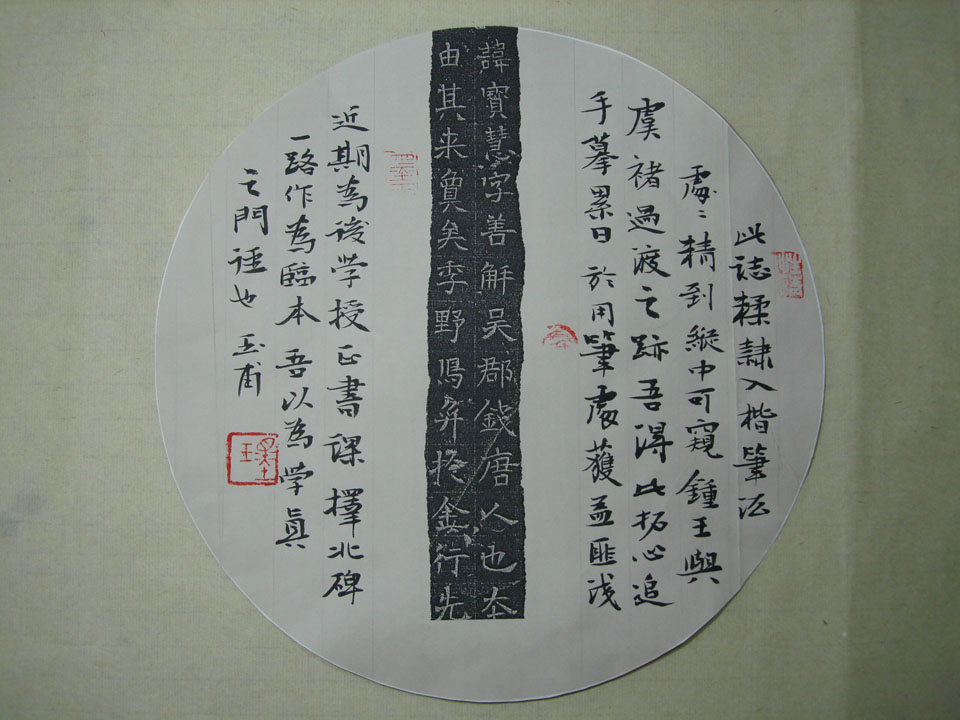 此誌糅隷入楷筆法
處〻精到縱中可窺鍾王與
虞褚過渡之跡吾得此拓心追
手摹累日於用筆處獲益匪浅
諱寶慧字善解吴郡錢唐人也本
由其来奠矣季野馮弁捴金行先
近期為後学授正書課擇北碑
一路作為臨本吾以為学真
之門逕也玉甫